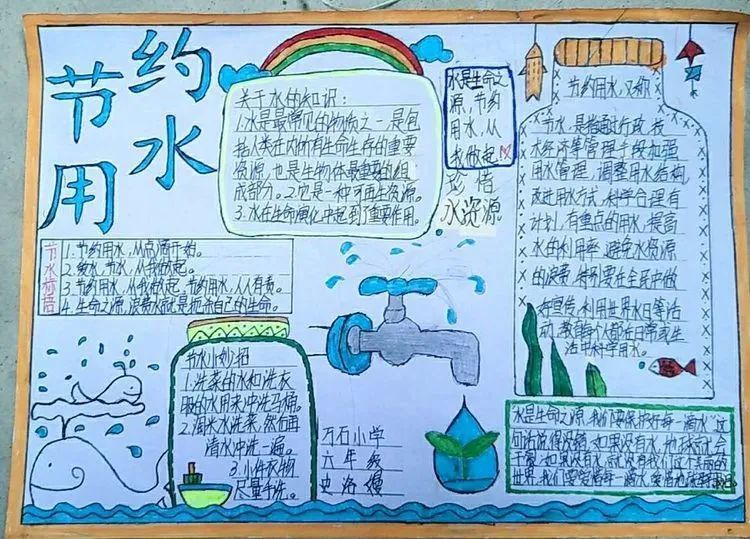 节约
用水
关于水的知识：
1.水是最常见的物质之一,是包
括人类在内所有生命生存的重要
资源,也是生物体最重要的组
成部分。2.它是一种可再生资源。
3.水在生命演化中起到了重要作用。
水是生命之
源,节约
用水,从
我做起
珍惜
水资源
节约用水,又称
节水,是指通过行政、技
术、经济等管理手段加强
用水管理,调整用水结构,
改进用水方式,科学合理有
计划、有重点的用水,提高
水的利用率,避免水资源
的浪费,特别要在全民中做
好宣传,利用世界水日等活
动,教育每个人都在日常或生
活中科学用水。
节水标语
1.节约用水,从点滴开始。
2.爱水、节水,从我做起。
3.节约用水,从我做起,节约用水,人人有责。
4.生命之源,浪费水就是扼杀自己的生命。
节水小妙招
1.洗菜的水和洗衣
服的水用来冲洗马桶。
2.淘米水洗菜,然后再
清水冲洗一遍。
3.小件衣物
尽量手洗。
万石小学
六年级
史洛
水是生命之源,我们要保护好每一滴水,这
句话说得没错,如果没有水,地球就会
干裂,如果没有水,就没有我们这个美丽的
世界,我们要爱惜每一滴水